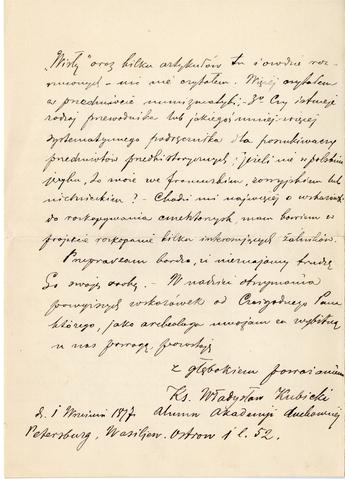 „Wisły” oraz kilku artykułów tu i owdzie roz-
rzuconych – nic nie czytałem. Więcej czytałem
w przedmiocie numizmatyki; – 3o Czy istnieje
rodzaj przewodnika lub jakiegoś mniej-więcej
systematycznego podręcznika dla poszukiwaczy
przedmiotów przedhistorycznych; jeżeli nie w polskim
języku, to może we francuskim, rossyjskim lub
niemieckim? – Chodzi mi najwięcej o wskazówki
do rozkopywania cmentarzysk, mam bowiem w
projekcie rozkopanie kilku interesujących żalników.
Przepraszam bardzo, iż nieznajomy trudzę
Go swoją osobą. – W nadziei otrzymania
powyższych wskazówek od Czcigodnego Pana
którego, jako archeologa uważam za wybitną
u nas powagę, pozostaję
z głębokiem poważaniem
Ks. Władysław Kubicki
d. 1 Września 1897. Alumn Akademji duchownej
Petersburg, Wasiljew. Ostrow 1 l. 52.